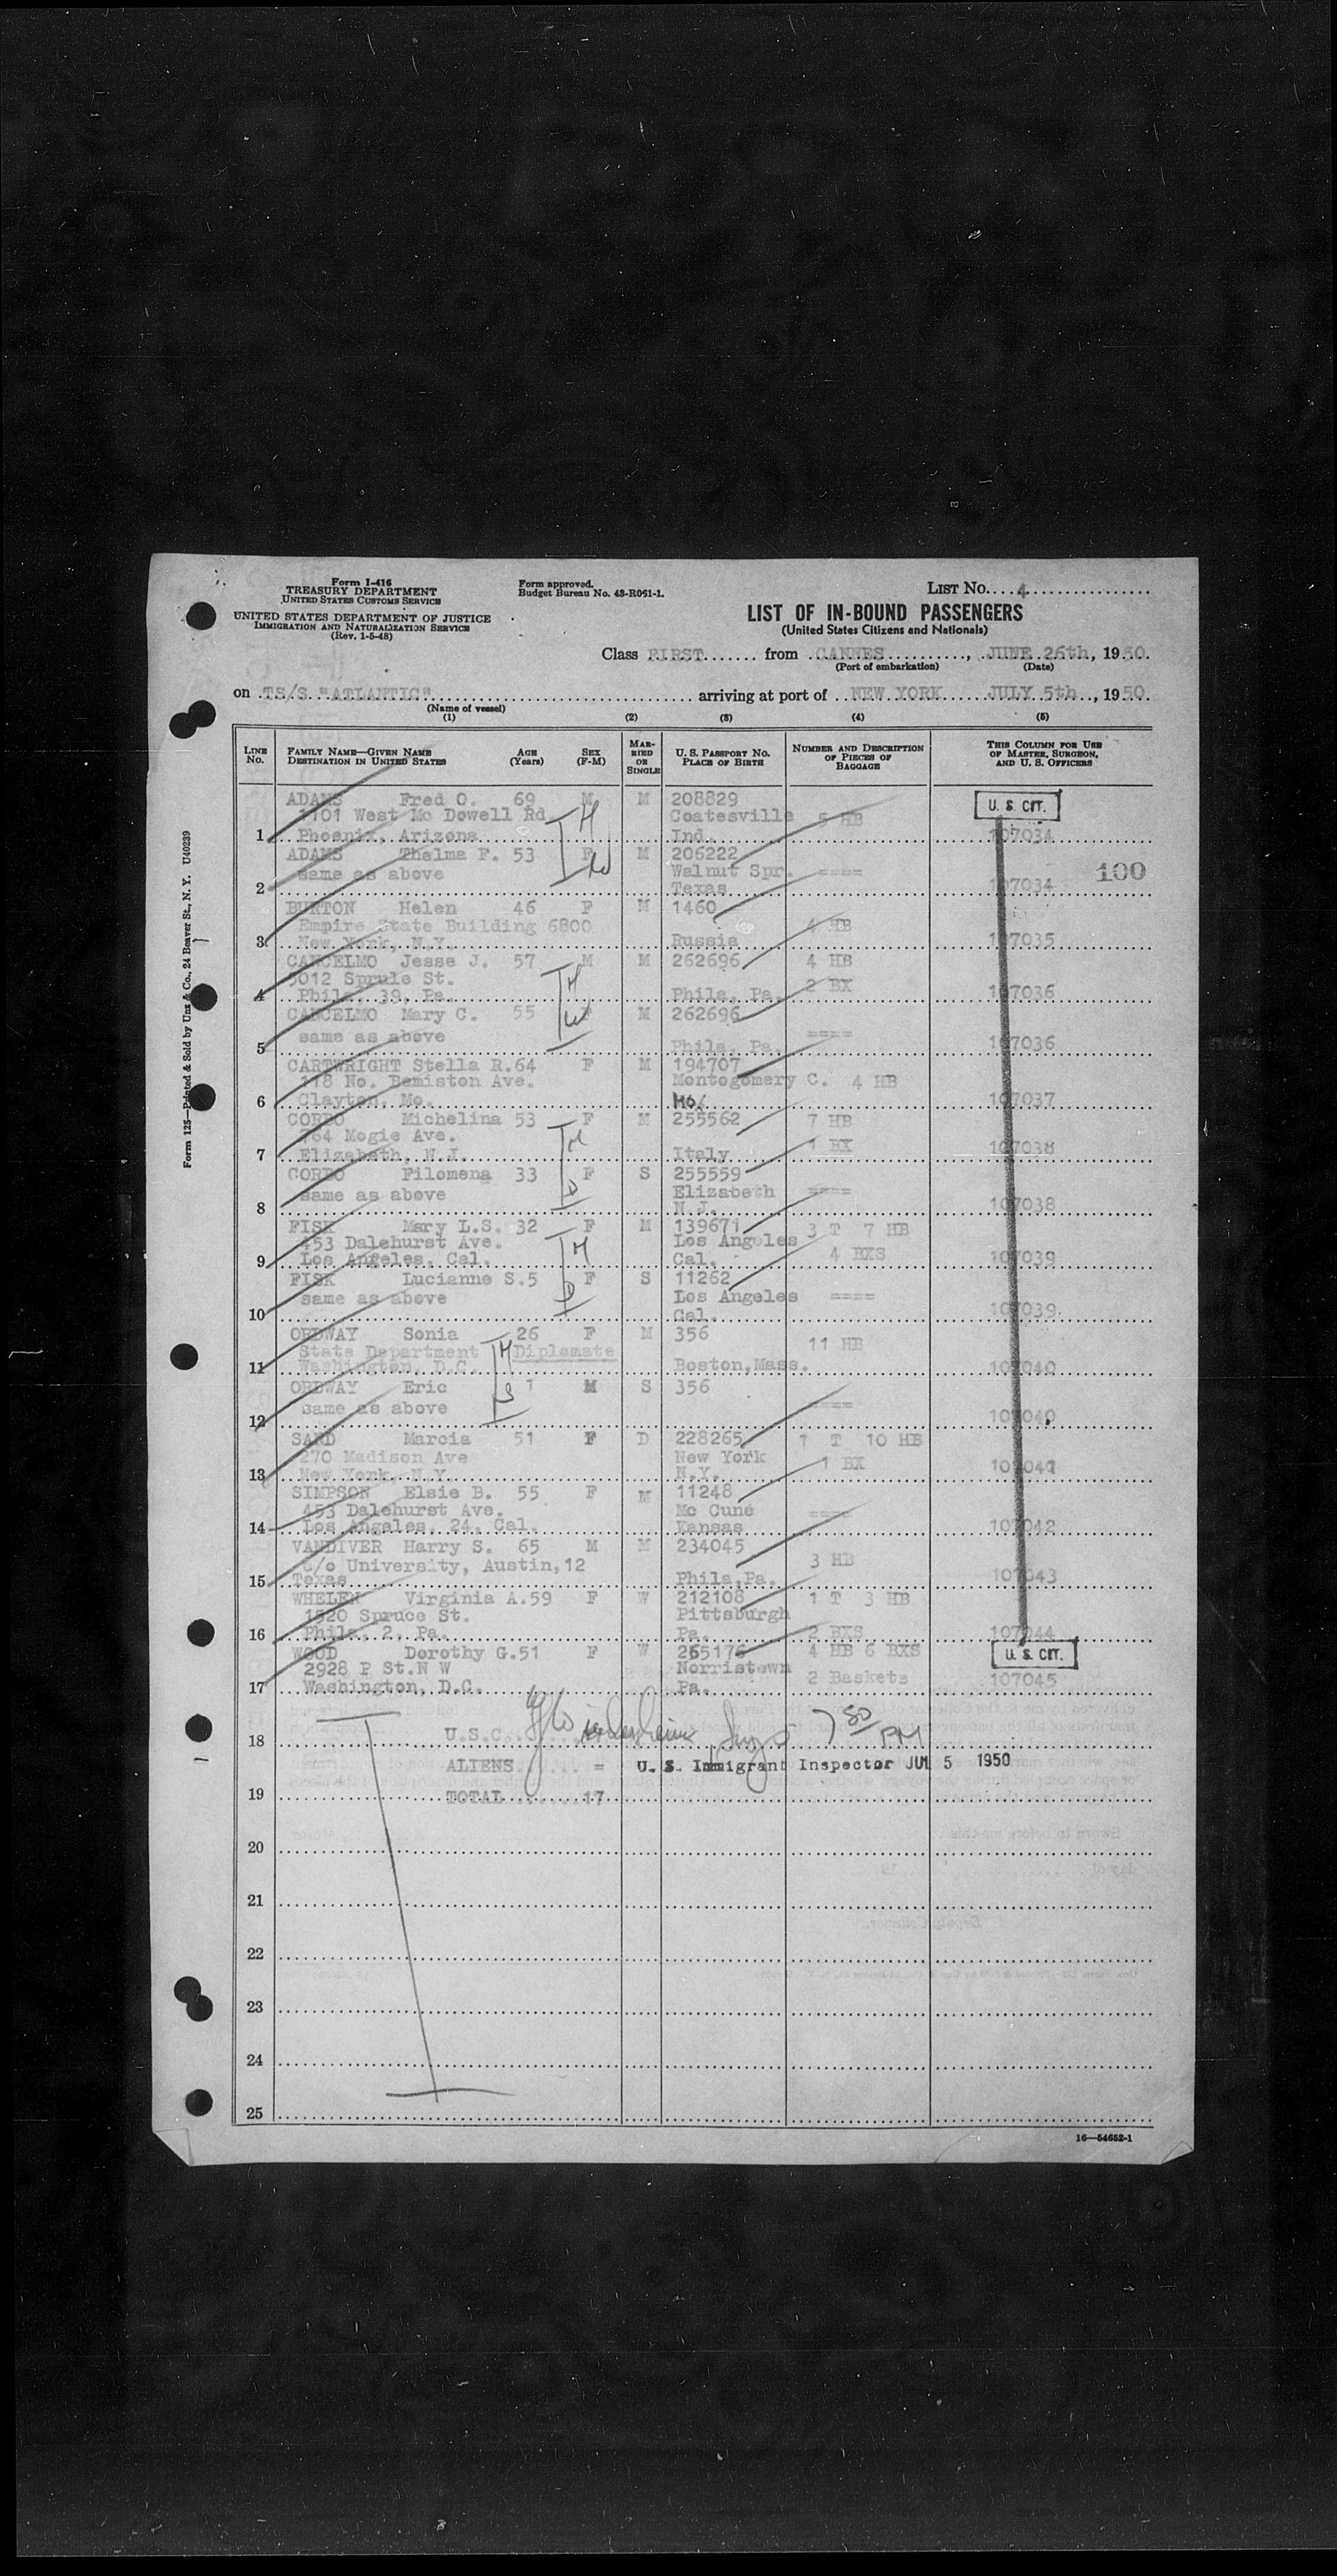 Form I-416
TREASURY DEPARTMENT
UNITED STATES CUSTOMS SERVICE
UNITED STATES DEPARTMENT OF JUSTICE
IMMIGRATION AND NATURALIZATION SERVICE
(Rev. 1-5-48)
Form approved.
Budget Bureau No. 43-R061-1.
LIST No. 4
LIST OF IN-BOUND PASSENGERS
(United States Citizens and Nationals)
Class FIRST from CANNES, JUNE 26th, 1950.
(Port of embarkation) (Date)
on TS/S "ATLANTIC" arriving at port of NEW YORK JULY 5th, 1950.
(Name of vessel)
(1) (2) (3) (4) (5)
LINE No. FAMILY NAME—GIVEN NAME DESTINATION IN UNITED STATES AGE (Years) SEX (F-M) MARRIED OR SINGLE U. S. PASSPORT No. PLACE OF BIRTH NUMBER AND DESCRIPTION OF PIECES OF BAGGAGE THIS COLUMN FOR USE OF MASTER, SURGEON, AND U. S. OFFICERS
ADAMS Fred O. 69 M M 208829 U. S. CIT.
1101 West Mc Dowell Rd. H Coatesville 5 HB
1 Phoenix, Arizona Ind. 107034
ADAMS Thelma F. 53 F M 206222
same as above W Walnut Spr. ==== 100
2 Texas 107034
BURTON Helen 46 F M 1460
Empire State Building 6800 4 HB
3 New York, N.Y. Russia 107035
CANCELMO Jesse J. 57 M M 262696 4 HB
5012 Sprule St. H 2 BX
4 Phila. 39, Pa. Phila, Pa. 107036
CANCELMO Mary C. 55 F M 262696
same as above W ====
5 Phila. Pa. 107036
CARTWRIGHT Stella R. 64 F M 194707
118 No. Bemiston Ave. Montogomery C. 4 HB
6 Clayton, Mo. Mo. 107037
CORBO Michelina 53 F M 255562 7 HB
764 Mogie Ave. M 1 BX
7 Elizabeth, N.J. Italy 107038
CORBO Filomena 33 F S 255559
same as above D Elizabeth ====
8 N.J. 107038
FISK Mary L.S. 32 F M 139671 3 T 7 HB
453 Dalehurst Ave. M Los Angeles
9 Los Angeles, Cal. Cal. 4 BXS 107039
FISK Lucianne S. 5 F S 11262
same as above D Los Angeles ====
10 Cal. 107039
ORDWAY Sonia 26 F M 356
State Department M Diplomate 11 HB
11 Washington, D.C. Boston, Mass. 107040
ORDWAY Eric 1 M S 356
same as above S ====
12 107040
SAND Marcia 51 F D 228265 1 T 10 HB
270 Madison Ave New York 1 BX
13 New York, N.Y. N.Y. 107041
SIMPSON Elsie B. 55 F M 11248
453 Dalehurst Ave. Mc Cune ====
14 Los Angeles, 24, Cal. Kansas 107042
VANDIVER Harry S. 65 M M 234045
c/o University, Austin, 12 3 HB
15 Texas Phila, Pa. 107043
WHELEN Virginia A. 59 F W 212108 1 T 3 HB
1520 Spruce St. Pittsburgh
16 Phila. 2, Pa. Pa. 2 BXS 107044
WOOD Dorothy G. 51 F W 265176 4 HB 6 BXS U. S. CIT.
2928 P St. N W Norristown 2 Baskets
17 Washington, D.C. Pa. 107045
18 U.S.C. 7 50 PM
ALIENS = U. S. Immigrant Inspector JUL 5 1950
19 TOTAL 17
20
21
22
23
24
25
16—54652-1
Form 125—Printed & Sold by Unz & Co., 24 Beaver St., N. Y. U40239